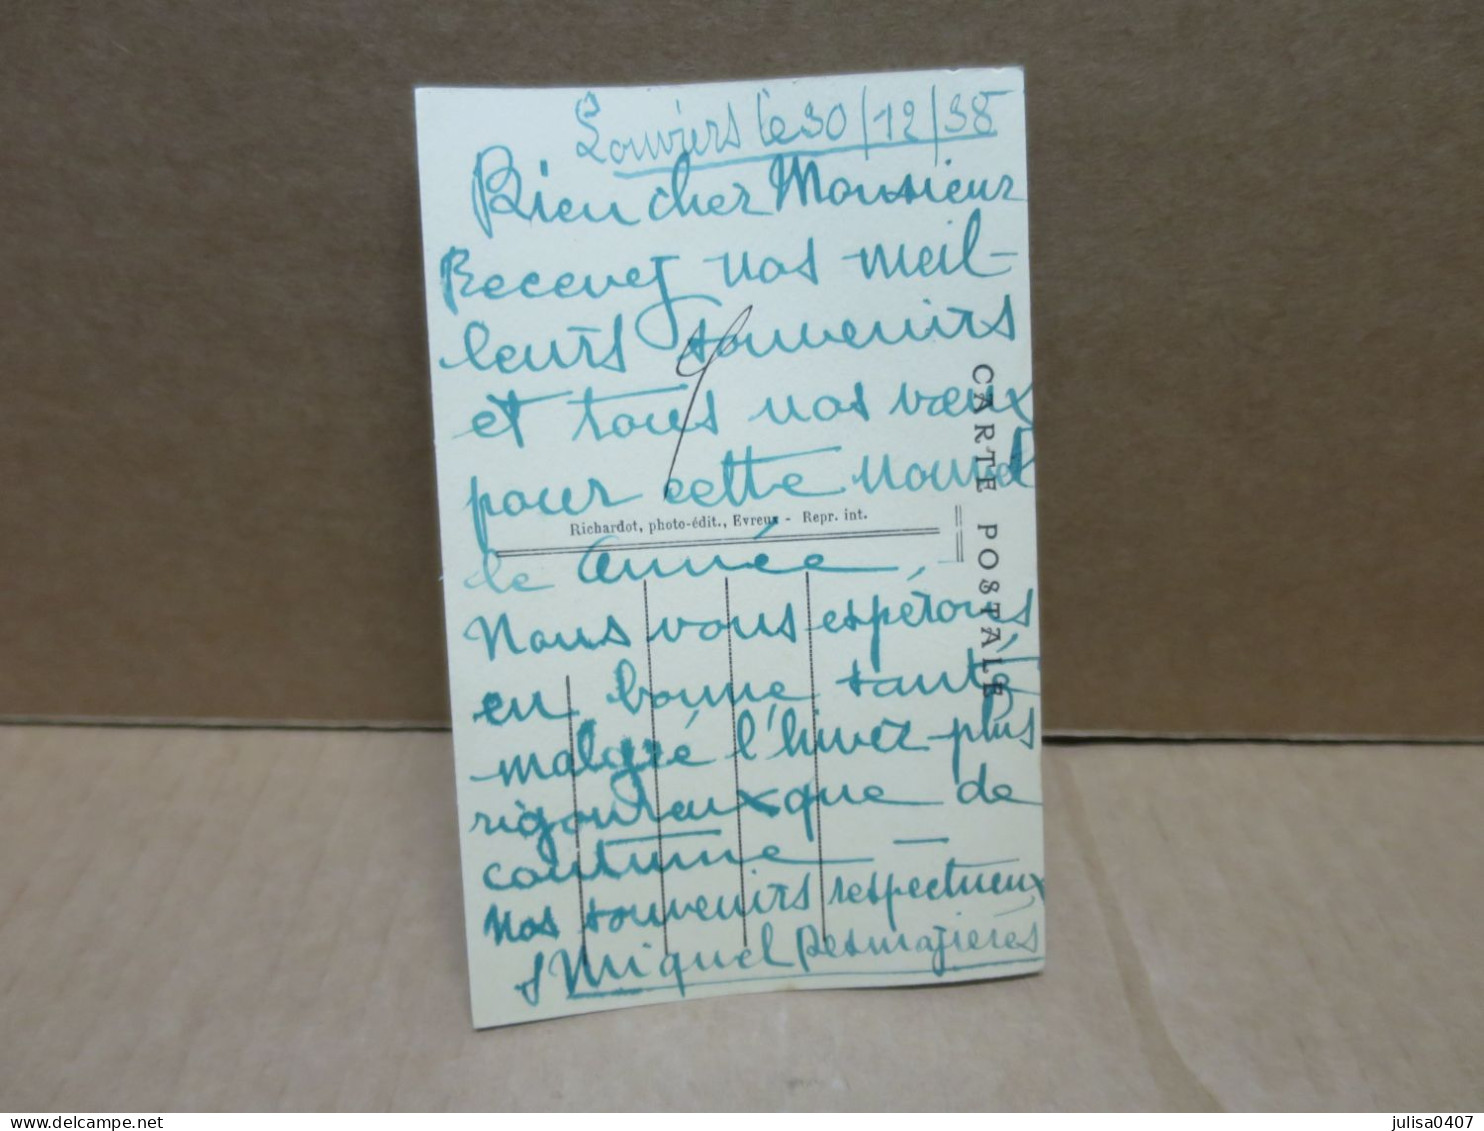 Louviers le 30/12/38
Bien cher Monsieur
Recevez nos meil-
leurs souvenirs
et tous nos vœux
pour cette nouvel
le Année.
Nous vous espérons,
en bonne santé,
malgré l'hiver plus
rigoureux que de
coutume —
Nos souvenirs respectueux
Miquel Desmazières
Richardot, photo-édit., Evreux - Repr. int.
CARTE POSTALE
delcampe.net
julisa0407